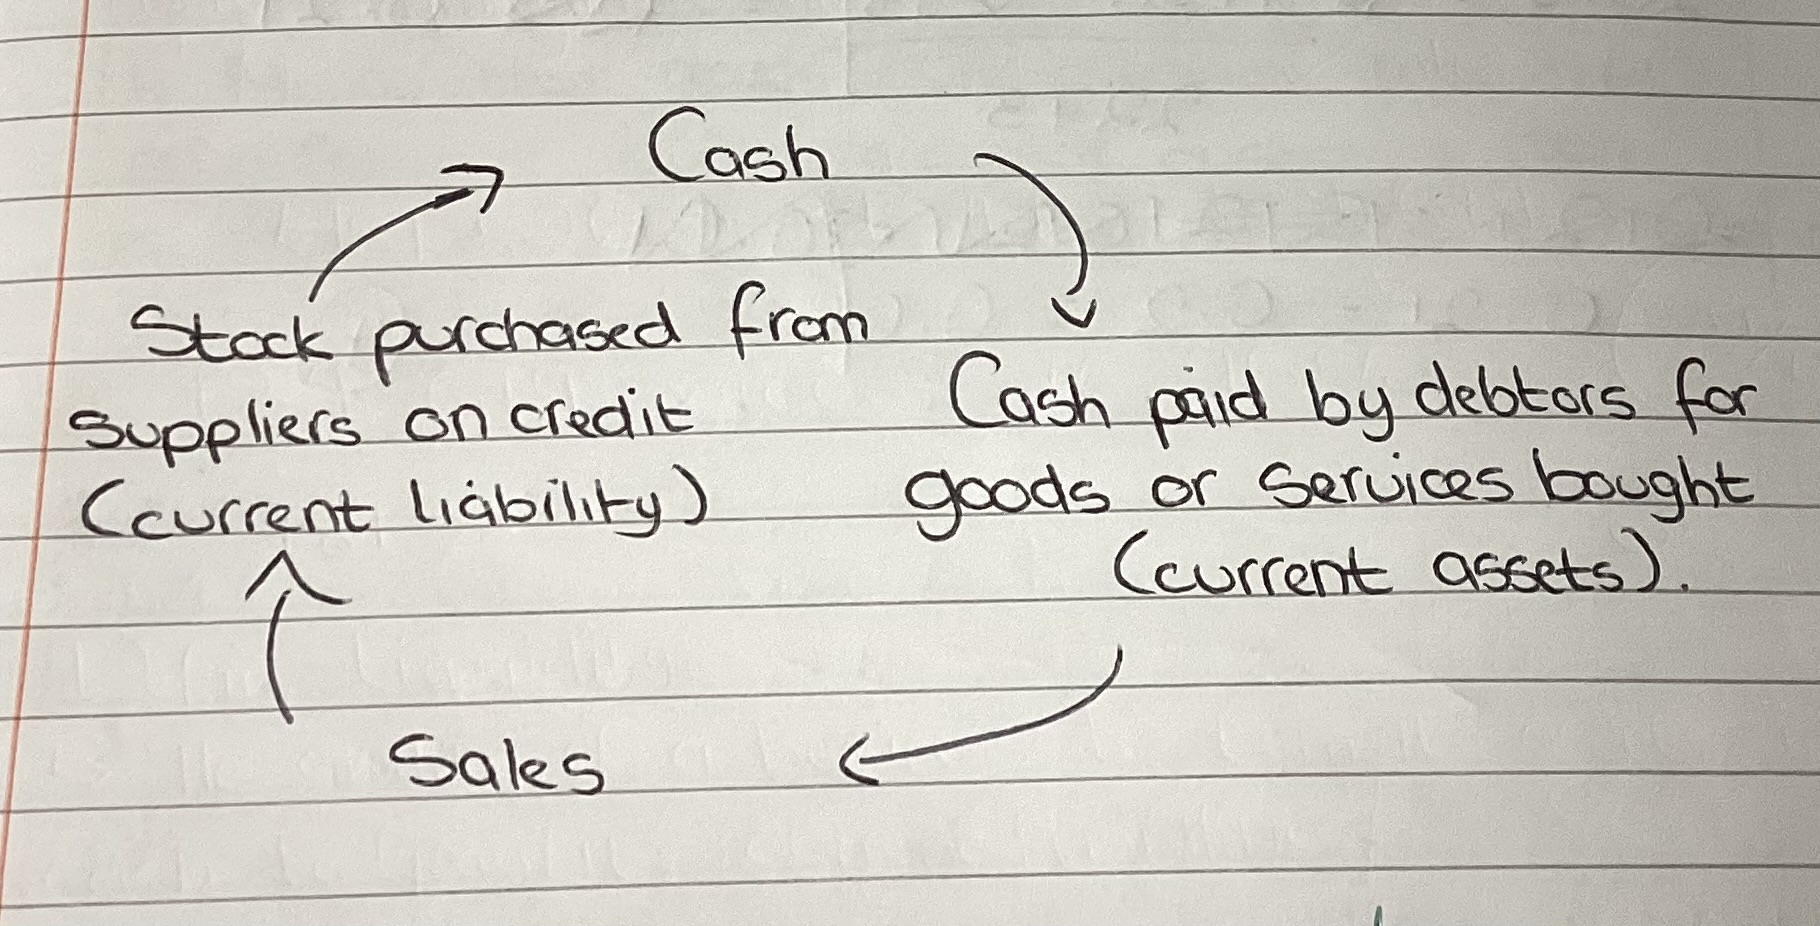 Cash
Stock purchased from
suppliers on credit
(current liability)
Cash paid by debtors for
goods or services bought
(current assets).
Sales